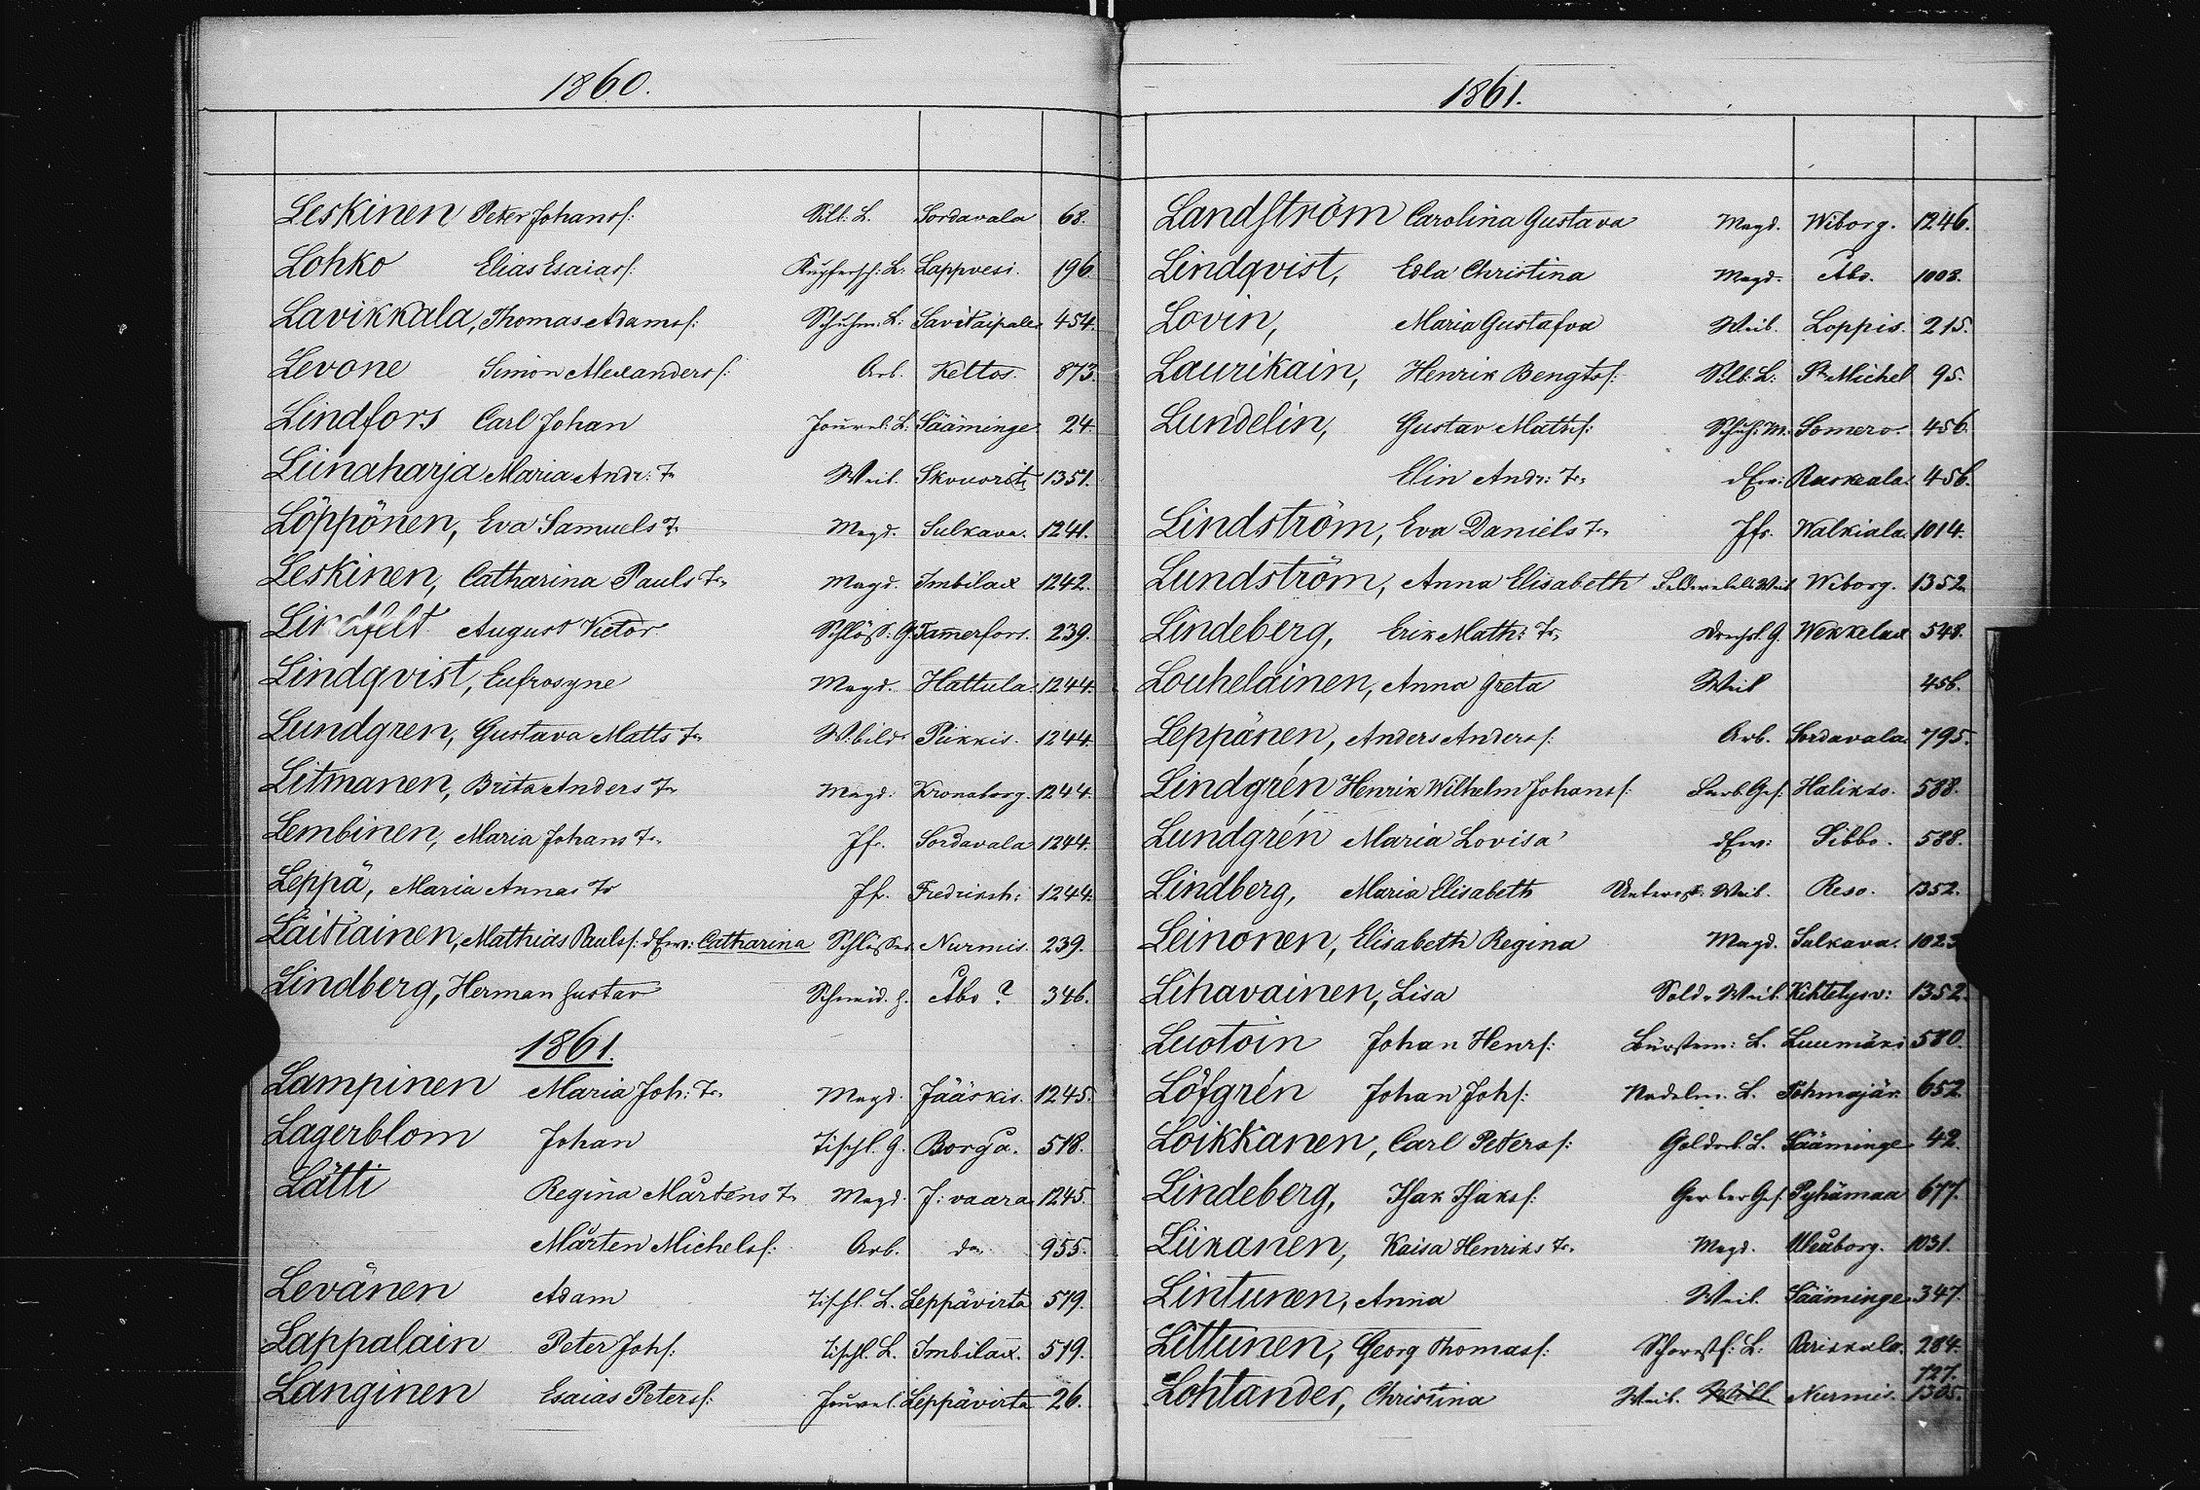 1860.
Leskinen Peter Johansf: Slb: L. Sordavala 68.
Lohko Elias Esaiasf: Kupfersch: L. Lappvesi. 196
Lavikkala, Thomas Adamsf: Schuhm: L. Savitaipale 454.
Levone Simon Alexandersf: Arb. Keltos. 873.
Lindfors Carl Johan Jouvel: L: Sääminge 24.
Liinaharja Maria Andr: Tr Weib. Skvuorits 1351.
Löppönen, Eva Samuels Tr Magd. Sulkava. 1241.
Leskinen, Catharina Pauls Tr. Magd. Imbilax 1242.
Lindfelt August Victor Schlöss: G. Tammerfors. 239.
Lindqvist, Eufrosyne Magd. Hattula. 1244.
Lundgren, Gustava Matts Tr Piikkis. 1244.
Litmanen, Brita Anders Tr Magd. Kronoborg. 1244.
Lembinen, Maria Johans Tr. Jfr. Sordavala 1244.
Leppä, Maria Annas Tr Jfr. Fredriksh: 1244.
Laitiainen, Mathias Paulsf: dEw: Catharina Schlösser. Nurmis. 239.
Lindberg, Herman Gustav Schneid. G. Åbo? 346.
1861.
Lampinen Maria Joh: Tr. Magd. Jääskis. 1245.
Lagerblom Johan Tischl. G. Borgå. 518.
Lätti Regina Mårtens Tr Magd. J: vaara 1245.
Mårten Michelsf: Arb. do 955.
Levänen Adam Tischl. L. Leppävirta 519.
Lappalain Peter Johsf: Tischl. L. Imbilax. 519.
Langinen Esaias Petersf: Jouvel. Leppävirta 26.
1861.
Landström Carolina Gustava Magd. Wiborg. 1246.
Lindqvist, Edla Christina Magd. Åbo. 1008.
Lovin, Maria Gustafva Weib. Loppis. 215.
Laurikain, Henrik Bengtsf: Slb: L: St Michel 95.
Lundelin, Gustav Mathsf: Schuh: M: Somero. 456.
Elin Andr: Tr. dEw: Ruskeala. 456.
Lindström, Eva Daniels Tr. Jfr. Walkiala. 1014.
Lundström, Anna Elisabeth Feldwebels Weib Wiborg. 1352.
Lindeberg, Erik Math: Tr. Drechsl. G. Wekkelax 548.
Louhelainen, Anna Greta Weib 456.
Leppänen, Anders Andersf: Arb. Sordavala. 795.
Lindgrén Henrik Wilhelm Johansf: Farb. Ges: Halikko. 588.
Lundgrén Maria Lovisa dEw: Sibbo. 588.
Lindberg, Maria Elisabeth Unteroff. Weib. Reso. 1352.
Leinonen, Elisabeth Regina Magd. Sulkava. 1023
Lihavainen, Lisa Sold. Weib. Kihtelysv: 1352.
Luotoin Johan Henrsf: Bürstenm: L. Luumäki 580.
Löfgrén Johan Johsf: Nadelm. L. Tohmajär. 652.
Loikkanen, Carl Petersf: Goldarb. L. Sääminge 42.
Lindeberg, Isak Isaksf: Gerber Ges. Pyhämaa 677.
Liikanen, Kaisa Henriks Tr. Magd. Uleåborg. 1031.
Lintunen, Anna Weib. Sääminge. 347.
Littunen, Georg Thomasf: Schornstf: L: Parikkala. 284.
727.
Lohtander, Christina Weib. Will Nurmis. 1305.